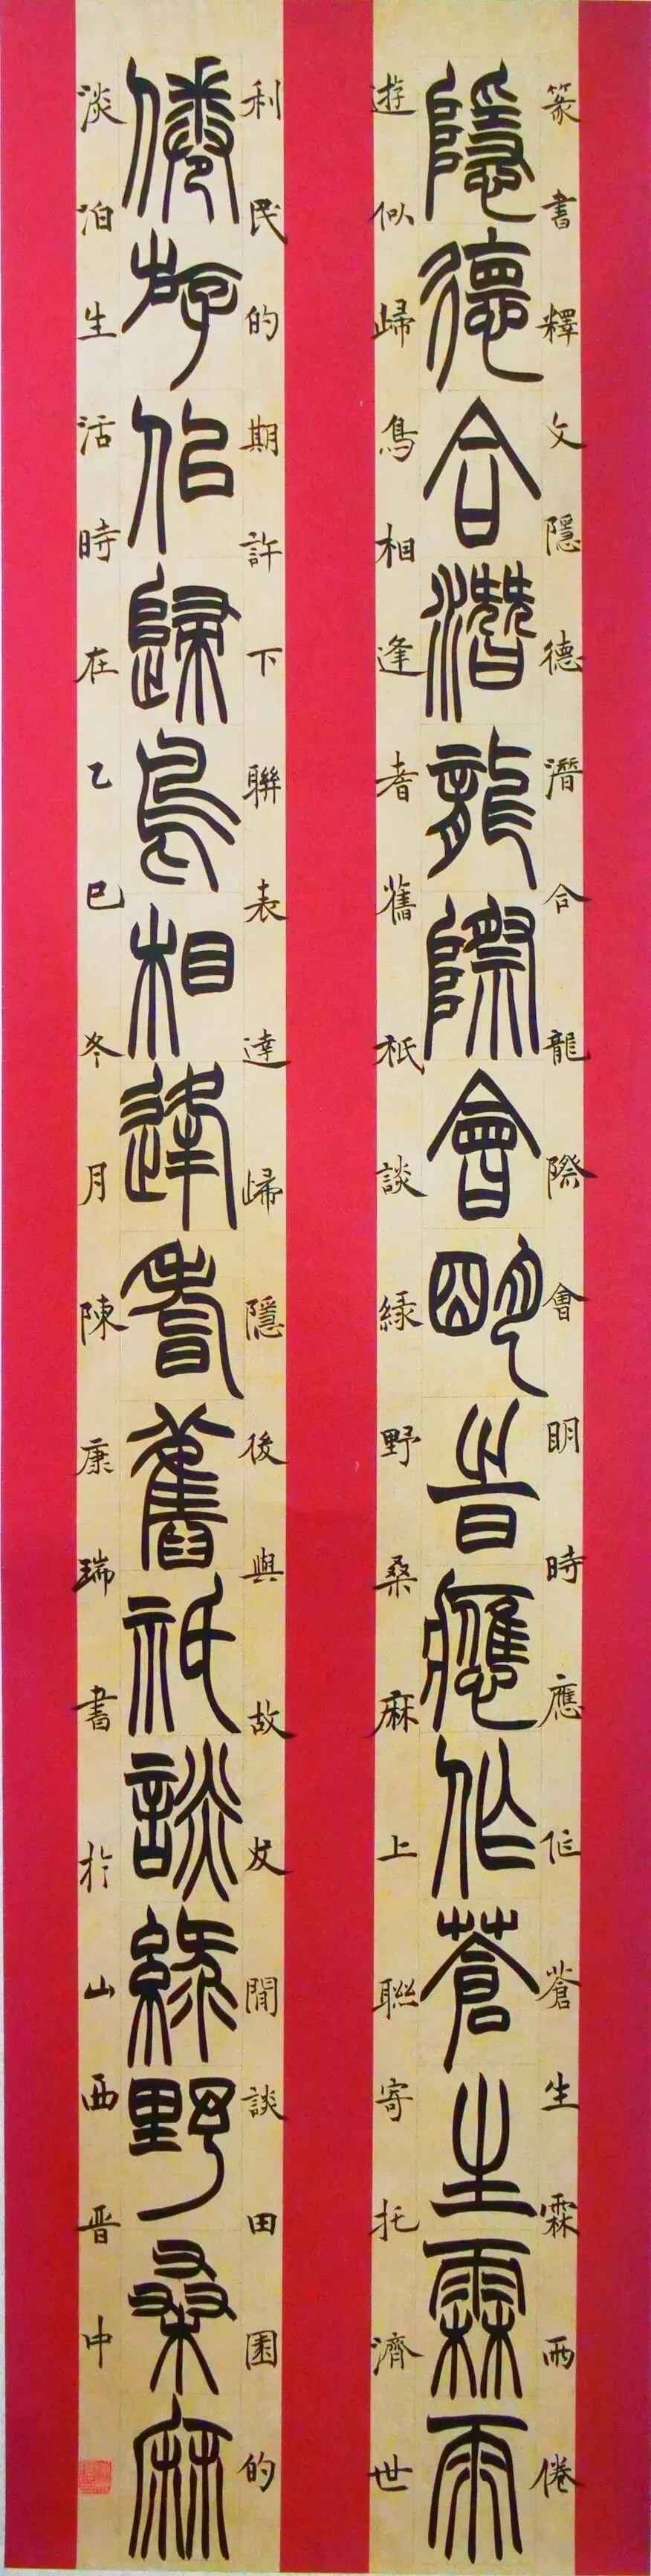 篆書釋文隱德潛合龍際會眀時應作蒼生霖雨倦
隱德合潛龍際會明時應作蒼生霖雨
遊似歸鳥相逢耆舊祇談緑野桑麻上聯寄托濟世
利民的期許下聯表達歸隱後與故友閒談田園的
倦游似歸鳥相逢耆舊祇談緑野桑麻
淡泊生活時在乙巳冬月陳康瑞書於山西晋中